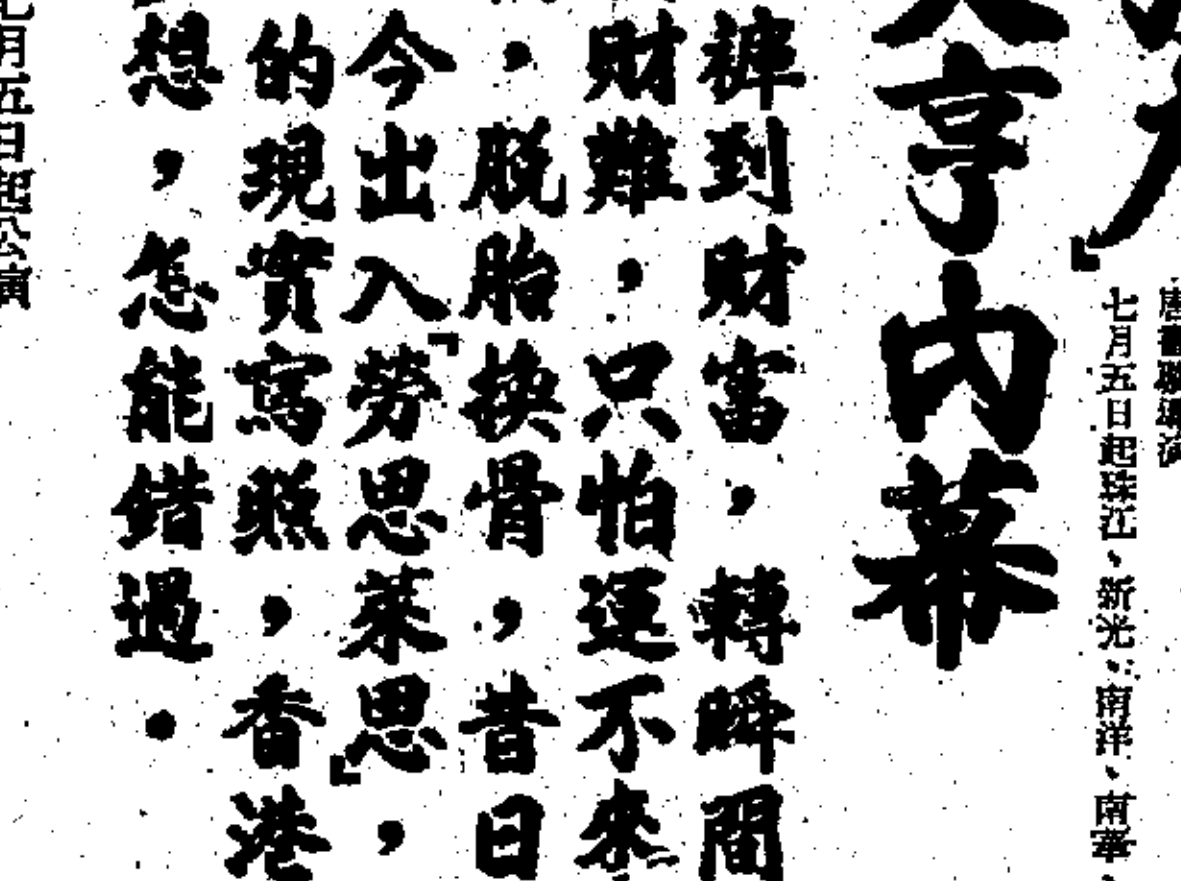 七月五日起珠江、新光、南洋、南華、
亨內幕
褲到財富，轉瞬間
財難，只怕運不來
，脫胎換骨，昔日
今出入「勞思萊思」，
的現實寫照，香港
想，怎能錯過。
月五日起公演